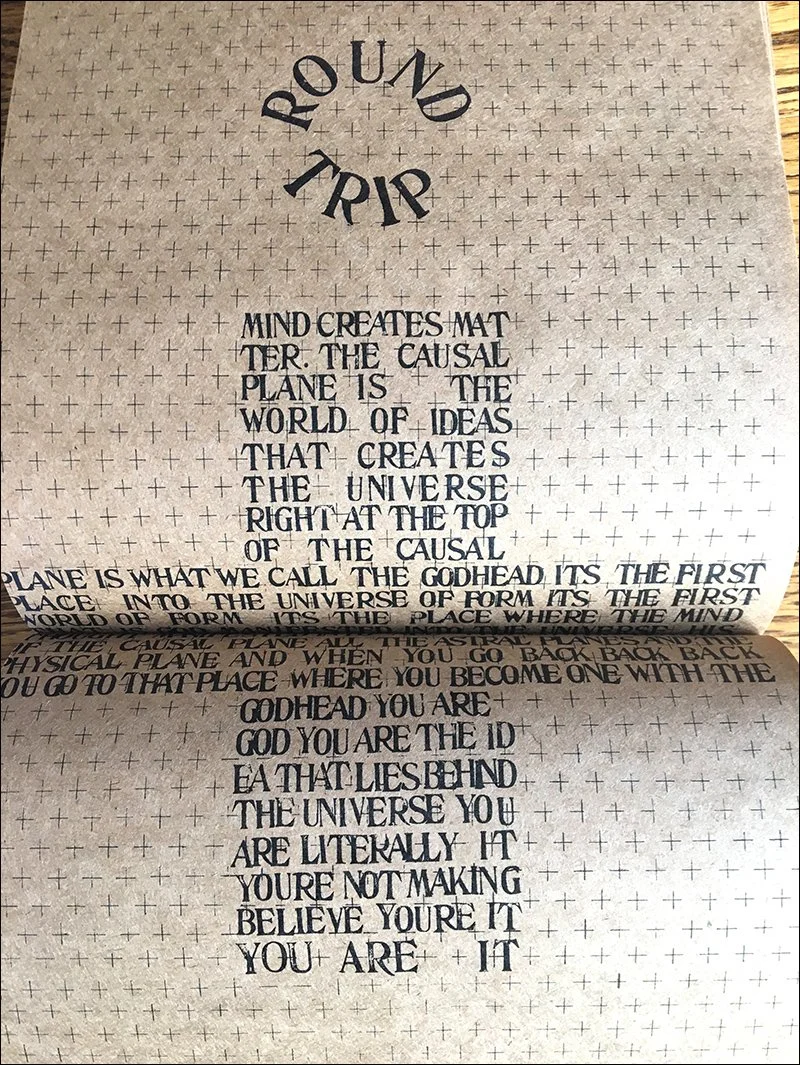 ROUND
TRIP
MIND CREATES MAT
TER. THE CAUSAL
PLANE IS THE
WORLD OF IDEAS
THAT CREATES
THE UNIVERSE
RIGHT AT THE TOP
OF THE CAUSAL
PLANE IS WHAT WE CALL THE GODHEAD ITS THE FIRST
PLACE INTO THE UNIVERSE OF FORM ITS THE FIRST
WORLD OF FORM ITS THE PLACE WHERE THE MIND
UNIVERSE HIS
OF THE CAUSAL PLANE ALL THE ASTRAL
PHYSICAL PLANE AND WHEN YOU GO BACK BACK BACK
YOU GO TO THAT PLACE WHERE YOU BECOME ONE WITH THE
GODHEAD YOU ARE
GOD YOU ARE THE ID
EA THAT LIES BEHIND
THE UNIVERSE YOU
ARE LITERALLY IT
YOURE NOT MAKING
BELIEVE YOURE IT
YOU ARE IT